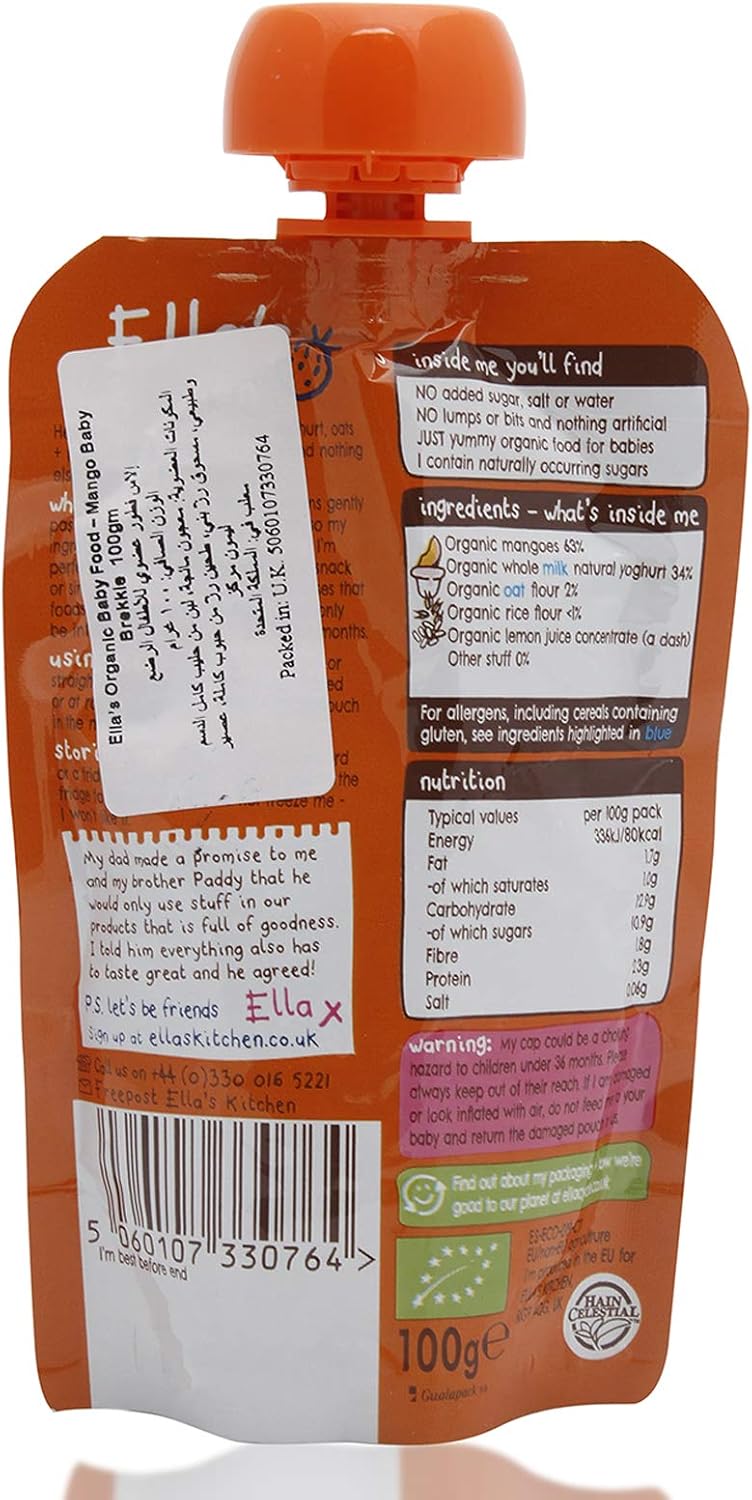 Ella's
Ella's Organic Baby Food – Mango Baby
Brekkie 100gm
إلاس فطور عضوي للأطفال الرضع
الوزن الصافي: ١٠٠ غرام
المكونات العضوية: معجون مانجة، لبن من حليب كامل الدسم
وطبيعي، مسحوق رز بني، طحين رز من حبوب كاملة، عصير
ليمون مركز
معلب في: المملكة المتحدة
Packed in: U.K. 5060107330764
urt, oats
nothing
wh
ns gently
so my
I'm
snack
ses that
only
months.
usin
or
ed
pouch
in the
stor
the
fridge
freeze me -
I won't like it
My dad made a promise to me
and my brother Paddy that he
would only use stuff in our
products that is full of goodness.
I told him everything also has
to taste great and he agreed!
P.S. let's be friends Ella x
sign up at ellaskitchen.co.uk
Call us on +44 (0)330 016 5221
Freepost Ella's Kitchen
5 060107 330764 >
I'm best before end
inside me you'll find
NO added sugar, salt or water
NO lumps or bits and nothing artificial
JUST yummy organic food for babies
I contain naturally occurring sugars
ingredients – what's inside me
Organic mangoes 63%
Organic whole milk natural yoghurt 34%
Organic oat flour 2%
Organic rice flour <1%
Organic lemon juice concentrate (a dash)
Other stuff 0%
For allergens, including cereals containing
gluten, see ingredients highlighted in blue
nutrition
Typical values per 100g pack
Energy 336kJ/80kcal
Fat 1.7g
-of which saturates 1.0g
Carbohydrate 12.9g
-of which sugars 10.9g
Fibre 1.8g
Protein 2.3g
Salt 0.06g
warning: My cap could be a choking
hazard to children under 36 months. Please
always keep out of their reach. If I am damaged
or look inflated with air, do not feed me to your
baby and return the damaged pouch to us.
Find out about my packaging how we're
good to our planet at
ES-ECO-
EU/non-EU agriculture
I'm produced in the EU for
ELLA'S KITCHEN,
RG9 4QG, UK
HAIN
CELESTIAL
100g e
Gualapack